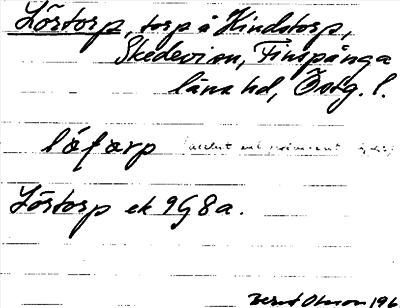 Lörstorp, torp å Hindstorp,
Skedevi sn, Finspånga
läns hd, Östg. l.
låfårp
Lörstorp ek 9G8a.
Bernt Olsson 196